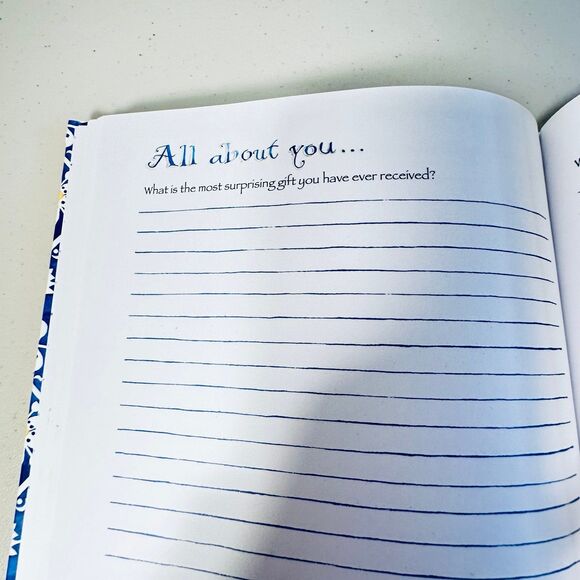 All about you...
What is the most surprising gift you have ever received?